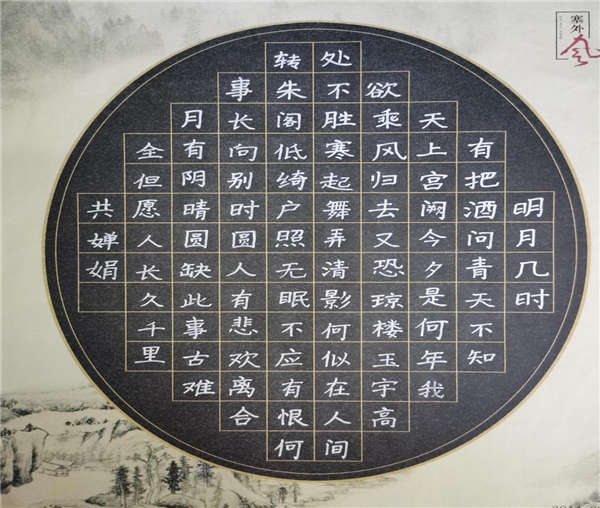 明月几时
有把酒问青天不知
天上宫阙今夕是何年我
欲乘风归去又恐琼楼玉宇高
处不胜寒起舞弄清影何似在人间
转朱阁低绮户照无眠不应有恨何
事长向别时圆人有悲欢离合
月有阴晴圆缺此事古难
全但愿人长久千里
共婵娟
塞外风